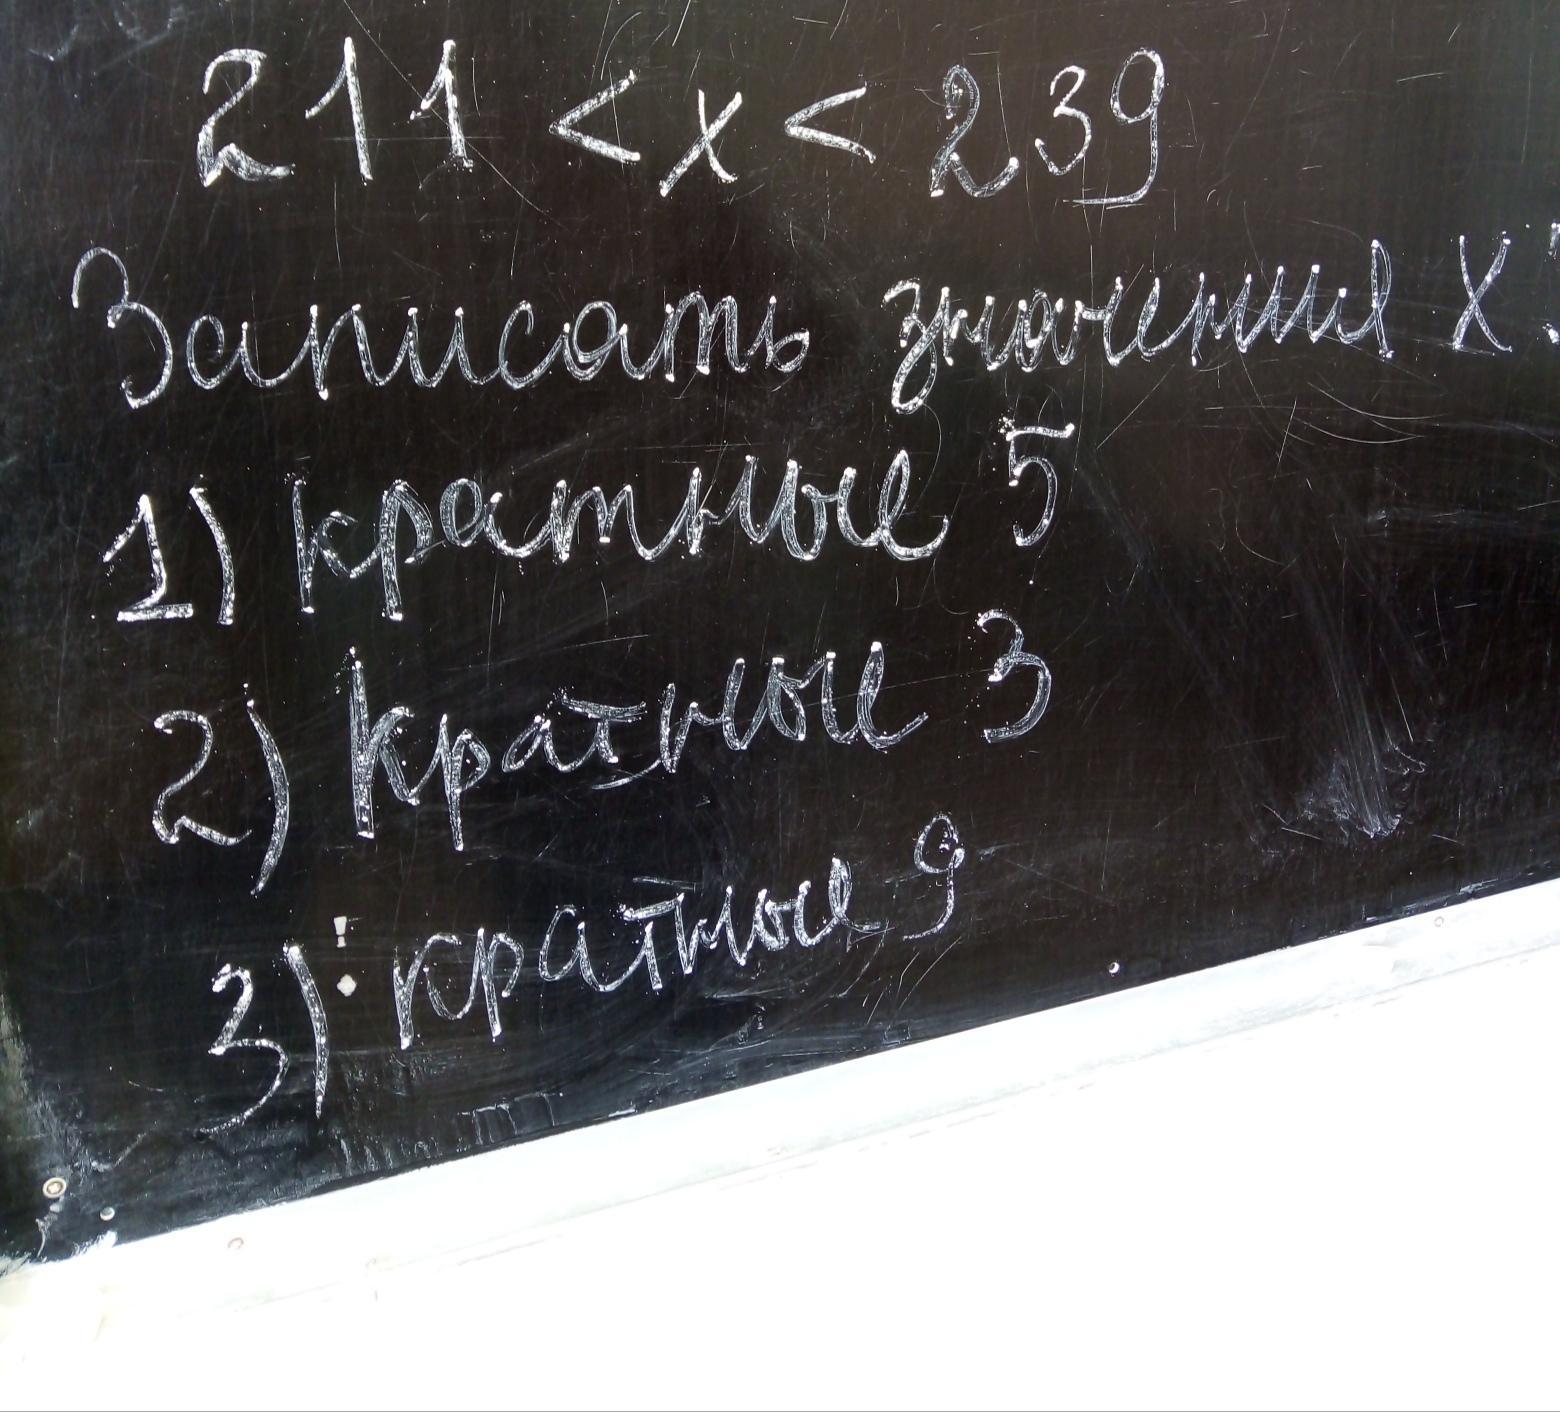 211 < x < 239
Записать значения x:
1) кратные 5
2) кратные 3
3) кратные 9